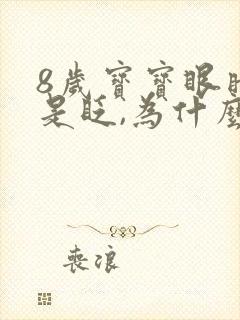 8歲寶寶眼
是眨,為什麼
喪浪